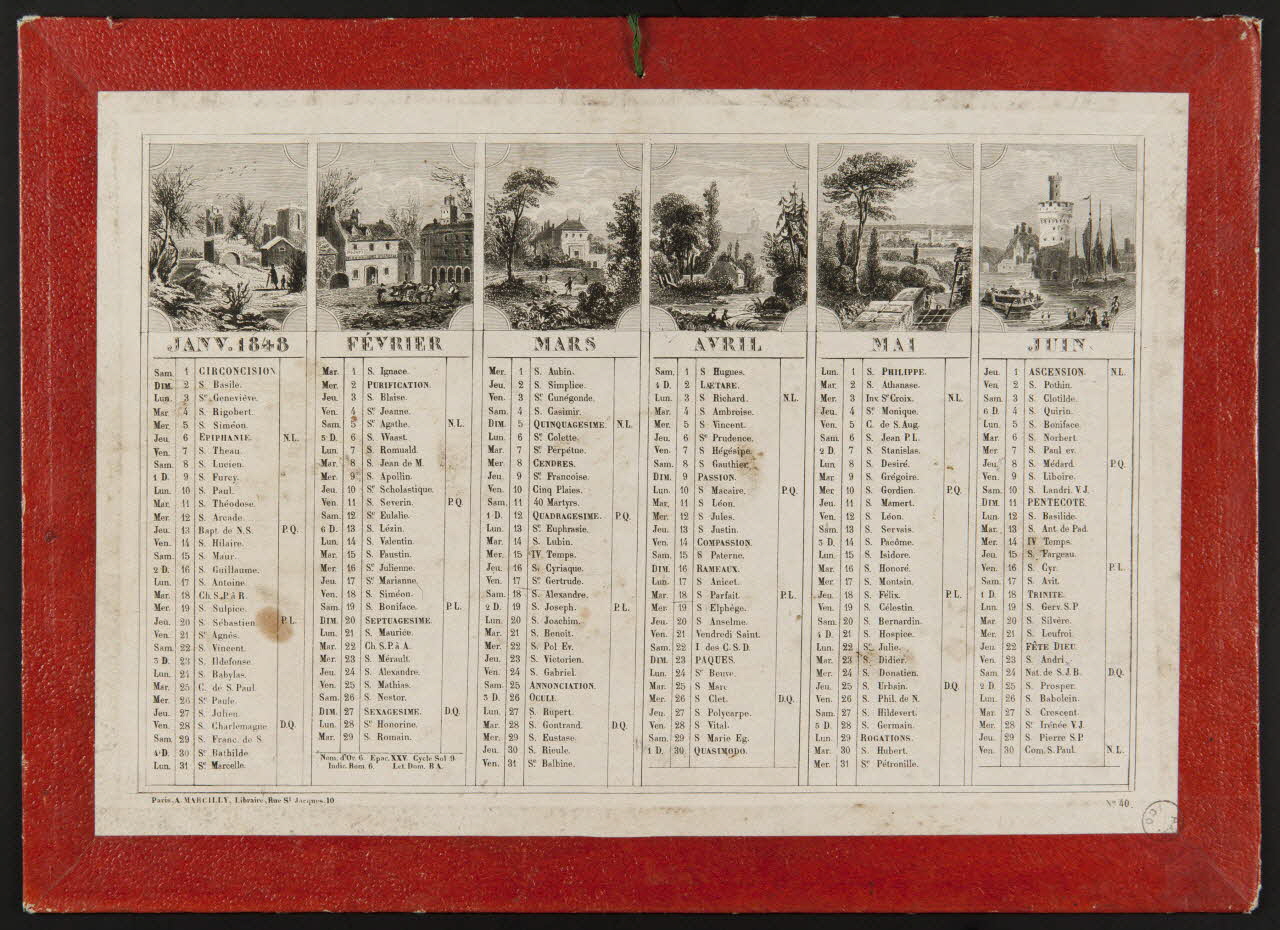 JANV. 1848
Sam. 1 CIRCONCISION
DIM. 2 S. Basile.
Lun. 3 Sᵉ Geneviève.
Mar. 4 S. Rigobert.
Mer. 5 S. Siméon.
Jeu. 6 EPIPHANIE. N.L.
Ven. 7 S. Theau.
Sam. 8 S. Lucien.
1 D. 9 S. Furcy.
Lun. 10 S. Paul.
Mar. 11 S. Théodose.
Mer. 12 S. Arcade.
Jeu. 13 Bapt. de N.S. P.Q.
Ven. 14 S. Hilaire.
Sam. 15 S. Maur.
2 D. 16 S. Guillaume.
Lun. 17 S. Antoine.
Mar. 18 Ch. S. P. à R.
Mer. 19 S. Sulpice.
Jeu. 20 S. Sébastien. P.L.
Ven. 21 Sᵉ Agnès.
Sam. 22 S. Vincent.
3 D. 23 S. Ildefonse.
Lun. 24 S. Babylas.
Mar. 25 C. de S. Paul.
Mer. 26 Sᵉ Paule.
Jeu. 27 S. Julien.
Ven. 28 S. Charlemagne D.Q.
Sam. 29 S. Franc. de S.
4 D. 30 Sᵉ Bathilde.
Lun. 31 Sᵉ Marcelle.
FÉVRIER
Mar. 1 S. Ignace.
Mer. 2 PURIFICATION.
Jeu. 3 S. Blaise.
Ven. 4 Sᵉ Jeanne.
Sam. 5 Sᵉ Agathe. N.L.
5 D. 6 S. Waast.
Lun. 7 S. Romuald.
Mar. 8 S. Jean de M.
Mer. 9 S. Apollin.
Jeu. 10 Sᵉ Scholastique.
Ven. 11 S. Severin. P.Q.
Sam. 12 Sᵉ Eulalie.
6 D. 13 S. Lézin.
Lun. 14 S. Valentin.
Mar. 15 S. Faustin.
Mer. 16 Sᵉ Julienne.
Jeu. 17 Sᵉ Marianne.
Ven. 18 S. Siméon.
Sam. 19 S. Boniface. P.L.
DIM. 20 SEPTUAGESIME.
Lun. 21 S. Maurice.
Mar. 22 Ch. S. P. à A.
Mer. 23 S. Mérault.
Jeu. 24 S. Alexandre.
Ven. 25 S. Mathias.
Sam. 26 S. Nestor.
DIM. 27 SEXAGESIME. D.Q.
Lun. 28 Sᵉ Honorine.
Mar. 29 S. Romain.
Nom. d'Or. 6. Epac. XXV. Cycle Sol 9.
Indic. Rom. 6. Let. Dom. B A.
MARS
Mer. 1 S. Aubin.
Jeu. 2 S. Simplice.
Ven. 3 Sᵉ Cunégonde.
Sam. 4 S. Casimir.
DIM. 5 QUINQUAGESIME. N.L.
Lun. 6 Sᵉ Colette.
Mar. 7 Sᵉ Perpétue.
Mer. 8 CENDRES.
Jeu. 9 Sᵉ Francoise.
Ven. 10 Cinq Plaies.
Sam. 11 40 Martyrs.
1 D. 12 QUADRAGESIME. P.Q.
Lun. 13 Sᵉ Euphrasie.
Mar. 14 S. Lubin.
Mer. 15 IV. Temps.
Jeu. 16 S. Cyriaque.
Ven. 17 Sᵉ Gertrude.
Sam. 18 S. Alexandre.
2 D. 19 S. Joseph. P.L.
Lun. 20 S. Joachim.
Mar. 21 S. Benoît.
Mer. 22 S. Pol Ev.
Jeu. 23 S. Victorien.
Ven. 24 S. Gabriel.
Sam. 25 ANNONCIATION.
3 D. 26 OCULI.
Lun. 27 S. Rupert.
Mar. 28 S. Gontrand. D.Q.
Mer. 29 S. Eustase.
Jeu. 30 S. Rieule.
Ven. 31 Sᵉ Balbine.
AVRIL
Sam. 1 S Hugues.
4 D. 2 LÆTARE.
Lun. 3 S Richard. N.L.
Mar. 4 S Ambroise.
Mer. 5 S Vincent.
Jeu. 6 Sᵉ Prudence.
Ven. 7 S Hégésipe.
Sam. 8 S Gauthier.
DIM. 9 PASSION.
Lun. 10 S Macaire. P.Q.
Mar. 11 S Léon.
Mer. 12 S Jules.
Jeu. 13 S Justin.
Ven. 14 COMPASSION.
Sam. 15 S Paterne.
DIM. 16 RAMEAUX.
Lun. 17 S Anicet.
Mar. 18 S Parfait. P.L.
Mer. 19 S Elphège.
Jeu. 20 S Anselme.
Ven. 21 Vendredi Saint.
Sam. 22 I des C.S.D.
DIM. 23 PAQUES.
Lun. 24 Sᵉ Beuve.
Mar. 25 S Marc
Mer. 26 S Clet. D.Q.
Jeu. 27 S Polycarpe.
Ven. 28 S Vital.
Sam. 29 S Marie Eg.
1 D. 30 QUASIMODO.
MAI
Lun. 1 S. PHILIPPE.
Mar. 2 S. Athanase.
Mer. 3 Inv. Sᵉ Croix. N.L.
Jeu. 4 Sᵉ Monique.
Ven. 5 C. de S. Aug.
Sam. 6 S. Jean P.L.
2 D. 7 S. Stanislas.
Lun. 8 S. Desiré.
Mar. 9 S. Grégoire.
Mer 10 S. Gordien. P.Q.
Jeu. 11 S. Mamert.
Ven. 12 S. Léon.
Sam. 13 S. Servais.
3 D. 14 S. Pacôme.
Lun. 15 S. Isidore.
Mar. 16 S. Honoré.
Mer. 17 S. Montain.
Jeu. 18 S. Félix. P.L.
Ven. 19 S. Célestin.
Sam. 20 S. Bernardin.
4 D. 21 S. Hospice.
Lun. 22 Sᵉ Julie.
Mar. 23 S. Didier.
Mer. 24 S. Donatien.
Jeu. 25 S. Urbain. D.Q.
Ven. 26 S. Phil. de N.
Sam. 27 S. Hildevert.
5 D. 28 S. Germain.
Lun. 29 ROGATIONS.
Mar. 30 S. Hubert.
Mer. 31 Sᵉ Pétronille.
JUIN
Jeu. 1 ASCENSION. N.L.
Ven. 2 S. Pothin.
Sam. 3 S. Clotilde.
6 D. 4 S. Quirin.
Lun. 5 S. Boniface.
Mar. 6 S. Norbert.
Mer. 7 S. Paul ev.
Jeu. 8 S. Médard. P.Q.
Ven. 9 S. Liboire.
Sam. 10 S. Landri. V.J.
DIM. 11 PENTECOTE.
Lun. 12 S. Basilide.
Mar. 13 S. Ant. de Pad.
Mer. 14 IV Temps.
Jeu. 15 S. Fargeau.
Ven. 16 S. Cyr. P.L.
Sam. 17 S. Avit.
1 D. 18 TRINITE.
Lun. 19 S. Gerv. S.P
Mar. 20 S. Silvère.
Mer. 21 S. Leufroi.
Jeu. 22 FÊTE DIEU.
Ven. 23 S. Andri.
Sam. 24 Nat. de S.J.B. D.Q.
2 D. 25 S. Prosper.
Lun. 26 S. Babolein.
Mar. 27 S. Crescent.
Mer. 28 Sᵗ Irénée V.J.
Jeu. 29 S. Pierre S.P
Ven. 30 Com. S. Paul. N.L.
Paris, A. MARCILLY, Libraire, Rue Sᵗ Jacques, 10
Nº 40.